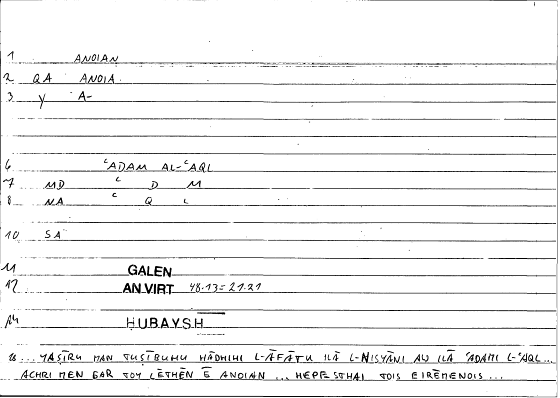 1 ANOIAN
2 QA ANOIA
3 Y A-
6 ʿADAM AL-ʿAQL
7 MD ʿ D M
8 NA ʿ Q L
10 SA
11 GALEN
12 AN VIRT 48.13 = 21.21
14 ḤUBAYSH
18 ... YAṢĪRU MAN TUṢĪBUHU HĀDHIHI L-ĀFĀTU ILĀ L-NISYĀNI AW ILĀ ʿADAMI L-ʿAQL ...
ACHRI MEN GAR TOY LĒTHĒN Ē ANOIAN ... HEPESTHAI TOIS EIRĒMENOIS ...